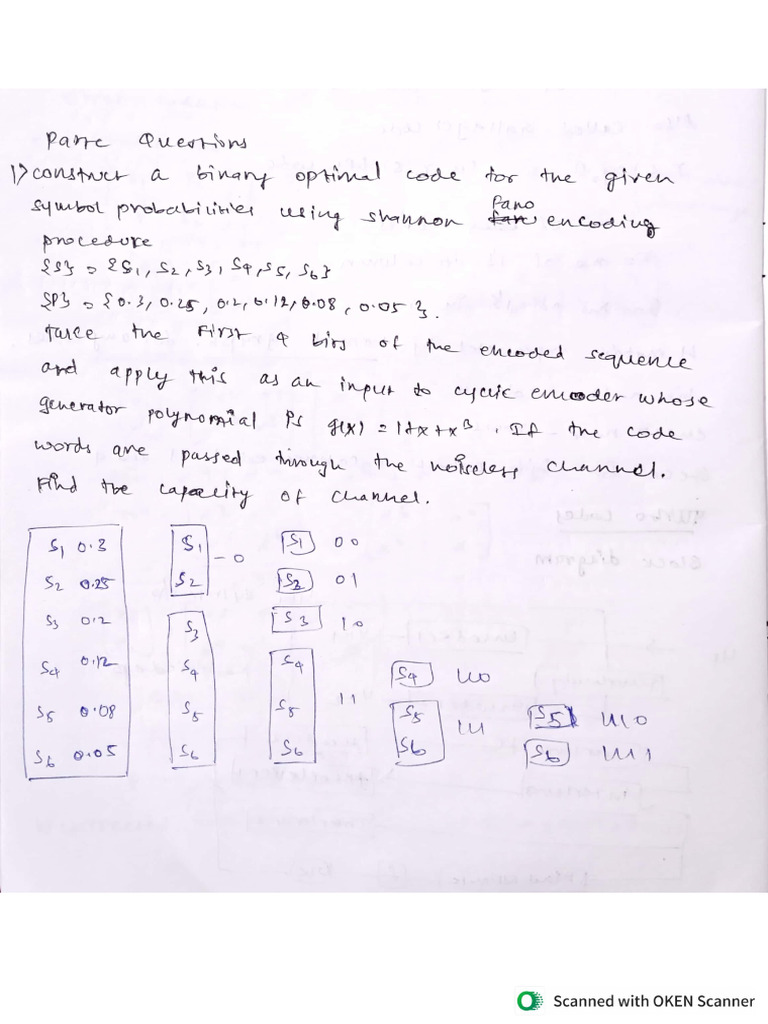 Parrc Questions
1) construct a binary optimal code for the given
symbol probabilities using shannon fano encoding
procedure
{S} = {S1, S2, S3, S4, S5, S6}
{P} = {0.3, 0.25, 0.2, 0.12, 0.08, 0.05}.
Take the First 4 bits of the encoded sequence
and apply this as an input to cyclic encoder whose
generator polynomial is g(x) = 1+x+x3. If the code
words are passed through the noiseless channel.
Find the capacity of channel.
S1 0.3 S1 - 0 S1 00
S2 0.25 S2 S2 01
S3 0.2 S3 S3 10
S4 0.12 S4 S4 11 S4 110
S5 0.08 S5 S5 S5 111 S5 1110
S6 0.05 S6 S6 S6 S6 1111
Scanned with OKEN Scanner